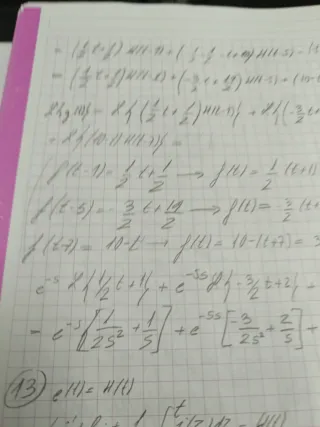 = (1/2 t + 1/2) H(t-1) + (
= (1/2 t + 1/2) H(t-1) + (-3/2 t + 19/2) H(t-5) + (10-t
L{g(t)} = L{(1/2 t + 1/2) H(t-1)} + L{(-3/2 t
+ L{(10-t) H(t-7)} =
f(t-1) = 1/2 t + 1/2 → f(t) = 1/2 (t+1)
f(t-5) = -3/2 t + 19/2 → f(t) = -3/2 (t
f(t-7) = 10-t → f(t) = 10-(t+7) = 3
e^-s L{1/2 t + 1} + e^-5s L{-3/2 t + 2} +
= e^-s [1/2s² + 1/s] + e^-5s [-3/2s² + 2/s] +
13 e(t) = H(t)